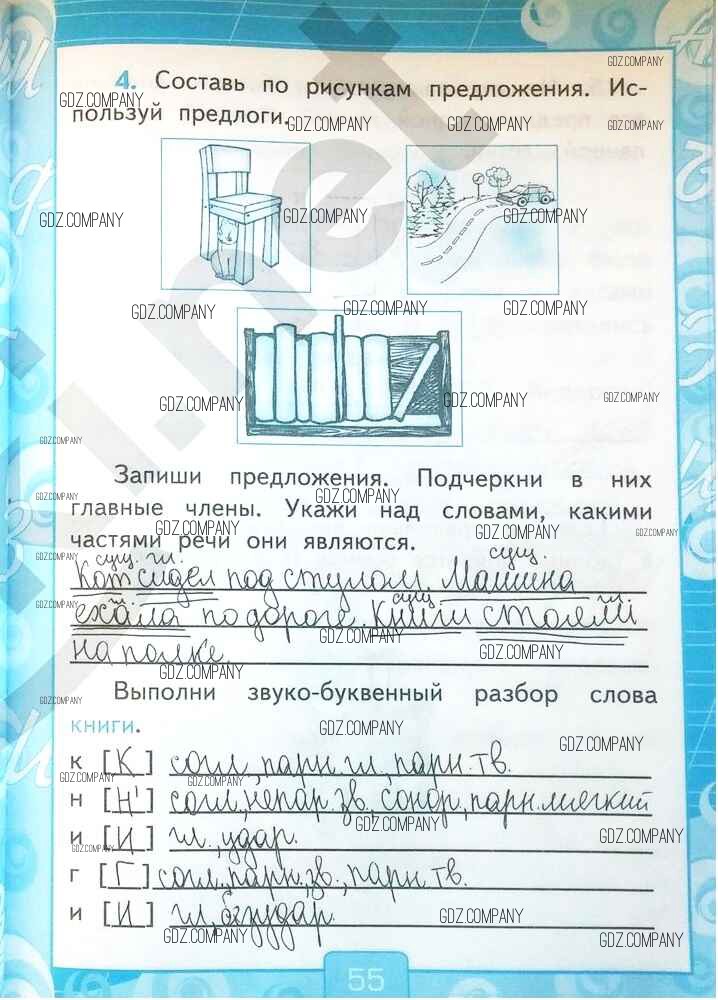 4. Составь по рисункам предложения. Ис-
GDZ.COMPANY
GDZ.COMPANY
пользуй предлоги.
GDZ.COMPANY
GDZ.COMPANY
GDZ.COMPANY
GDZ.COMPANY
GDZ.COMPANY
GDZ.COMPANY
GDZ.COMPANY
GDZ.COMPANY
GDZ.COMPANY
GDZ.COMPANY
GDZ.COMPANY
GDZ.COMPANY
GDZ.COMPANY
GDZ.COMPANY
Запиши предложения. Подчеркни в них
GDZ.COMPANY
GDZ.COMPANY
GDZ.COMPANY
главные члены. Укажи над словами, какими
GDZ.COMPANY
GDZ.COMPANY
GDZ.COMPANY
частями речи они являются.
сущ. гл. сущ.
GDZ.COMPANY
GDZ.COMPANY
Кот сидел под стулом. Машина
гл. сущ. гл.
GDZ.COMPANY
GDZ.COMPANY
ехала по дороге. Книги стояли
GDZ.COMPANY
GDZ.COMPANY
на полке.
GDZ.COMPANY
Выполни звуко-буквенный разбор слова
GDZ.COMPANY
книги.
GDZ.COMPANY
GDZ.COMPANY
к [К] согл., парн. гл., парн. тв.
GDZ.COMPANY
GDZ.COMPANY
н [Н'] согл., непар. зв., сонор., парн. мягкий
GDZ.COMPANY
и [И] гл., удар.
GDZ.COMPANY
GDZ.COMPANY
г [Г] согл., парн. зв., парн. тв.
и [И] гл., безудар.
GDZ.COMPANY
GDZ.COMPANY
GDZ.COMPANY
55